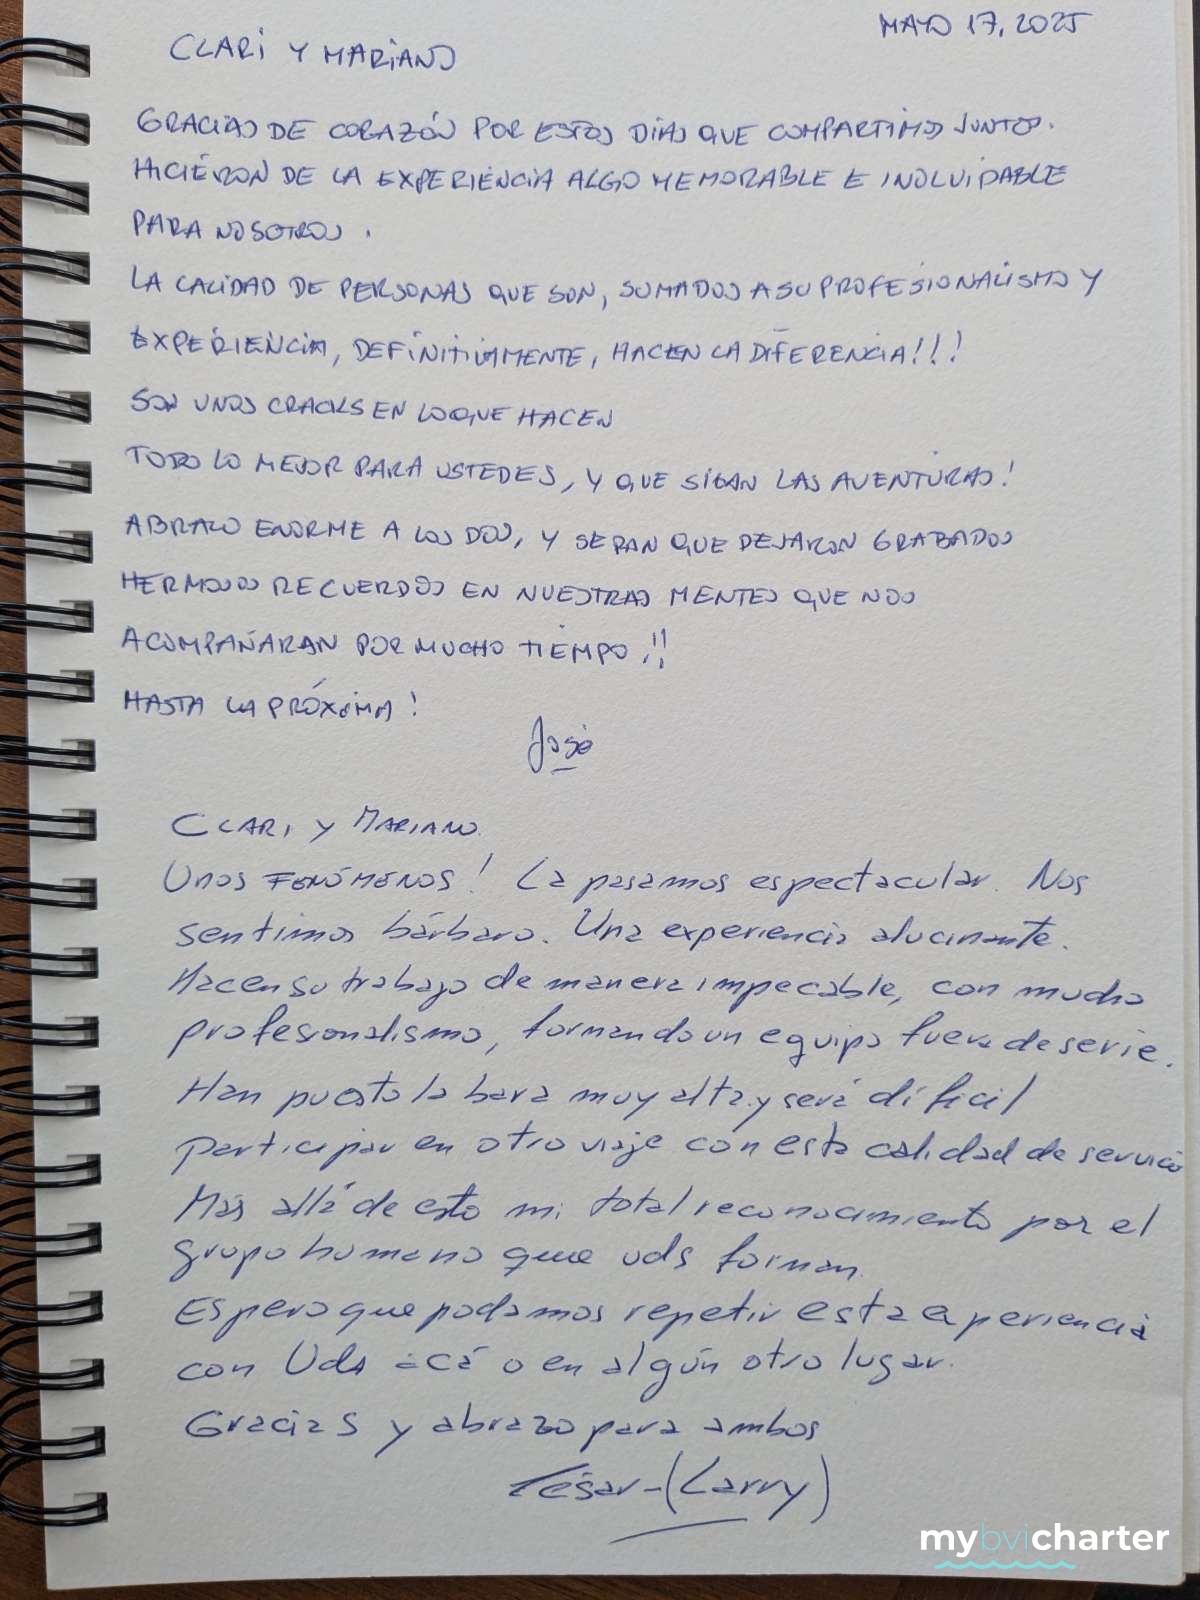 MAYO 17, 2025
CLARI Y MARIANO
GRACIAS DE CORAZÓN POR ESTOS DÍAS QUE COMPARTIMOS JUNTOS.
HICIÉRON DE LA EXPERIENCIA ALGO MEMORABLE E INOLVIDABLE
PARA NOSOTROS.
LA CALIDAD DE PERSONAS QUE SON, SUMADOS A SU PROFESIONALISMO Y
EXPERIENCIA, DEFINITIVAMENTE, HACEN LA DIFERENCIA!!!
SON UNOS CRACKS EN LO QUE HACEN
TODO LO MEJOR PARA USTEDES, Y QUE SIGAN LAS AVENTURAS!
ABRAZO ENORME A LOS DOS, Y SEPAN QUE DEJARON GRABADOS
HERMOSOS RECUERDOS EN NUESTRAS MENTES QUE NOS
ACOMPAÑARAN POR MUCHO TIEMPO!!
HASTA LA PRÓXIMA!
José
CLARI Y MARIANO.
Unos FENÓMENOS! La pasamos espectacular. Nos
sentimos bárbaro. Una experiencia alucinante.
Hacen su trabajo de manera impecable, con mucho
profesionalismo, formando un equipo fuera de serie.
Han puesto la bara muy alta y será difícil
participar en otro viaje con esta calidad de servicio
Más allá de esto mi total reconocimiento por el
grupo humano que uds forman.
Espero que podamos repetir esta experiencia
con Uds acá o en algún otro lugar.
Gracias y abrazo para ambos
César - (Larry)
mybvicharter